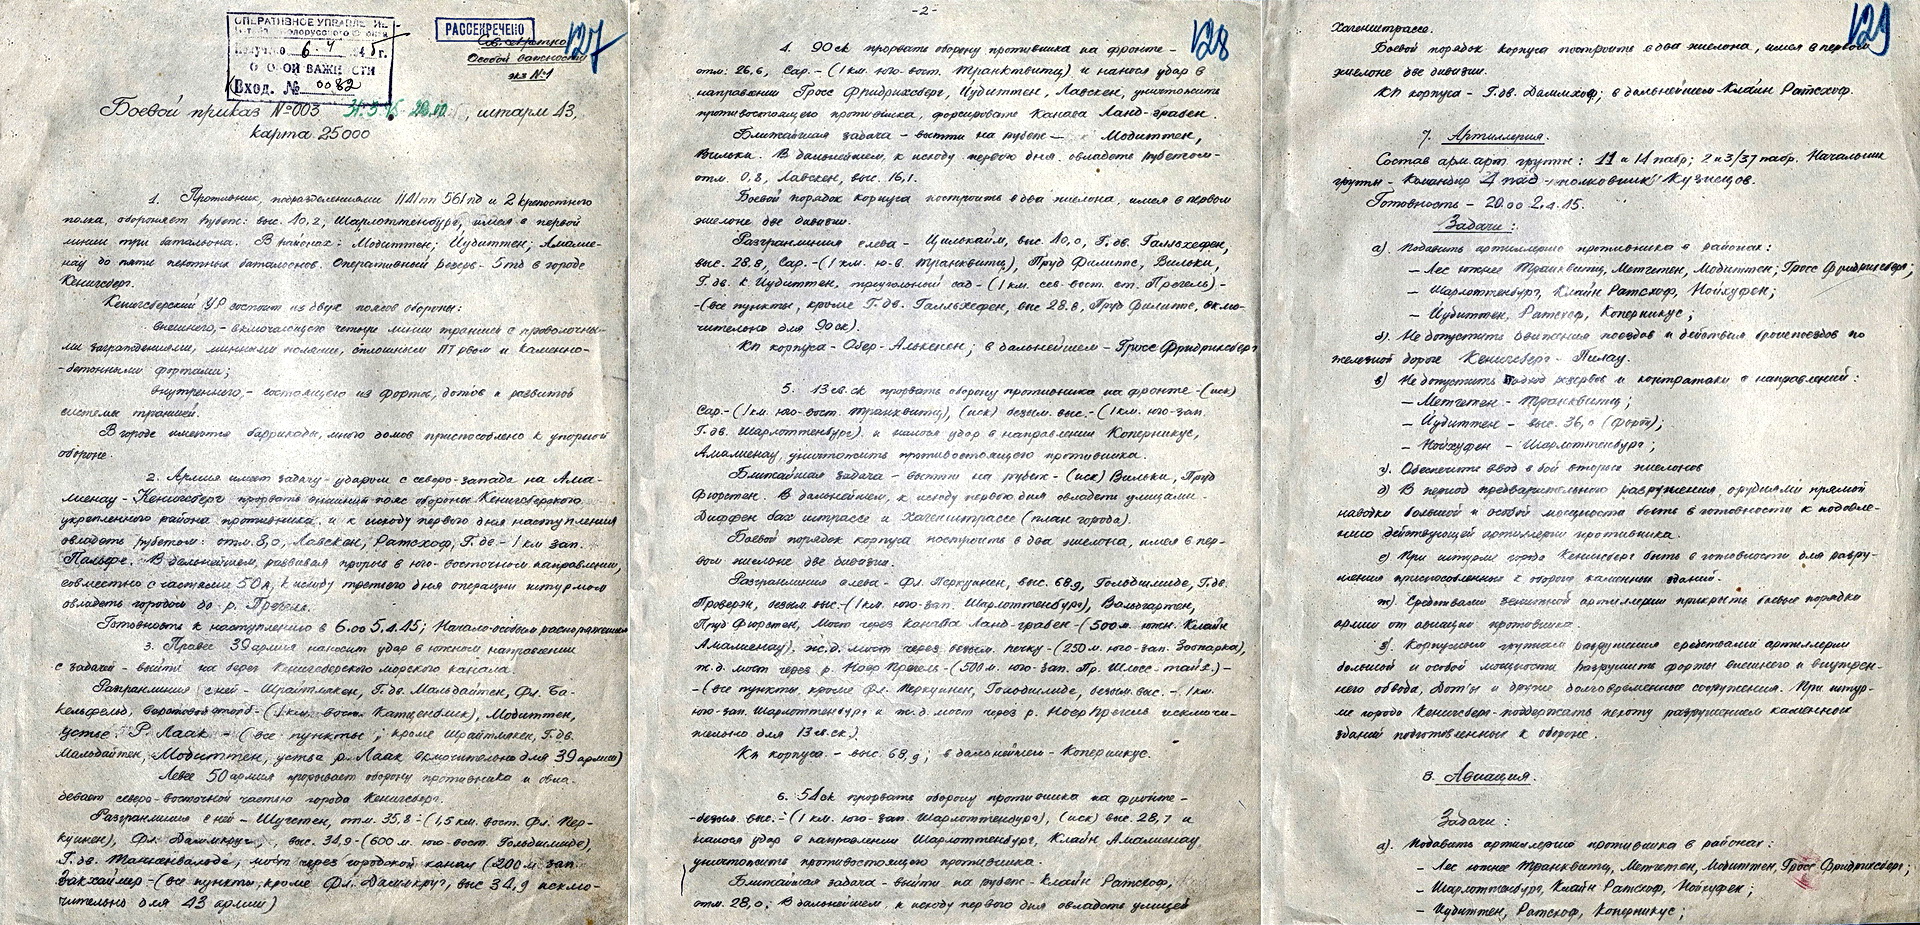 ОПЕРАТИВНОЕ УПРАВЛЕНИЕ
Белорусского
Получено 6. 4 1945г.
ОСОБОЙ ВАЖНОСТИ
Вход. № 0082
РАССЕКРЕЧЕНО
Сов. секретно
Особой важности
экз №1
127
Боевой приказ №003 штарм 43,
карта 25000
1. Противник, подразделениями 1141пп 561пд и 2 крепостного
полка, обороняет рубеж: выс. 10,2, Шарлоттенбург, имея в первой
линии три батальона. В районах: Модиттен; Иудиттен; Амалие-
нау до пяти пехотных батальонов. Оперативный резерв - 5тд в городе
Кенигсберг.
Кенигсберский УР состоит из двух поясов обороны:
внешнего, - включающего четыре линии траншей с проволочны-
ми заграждениями, минными полями, сплошным ПТ рвом и каменно-
-бетонными фортами;
внутреннего, - состоящего из фортов, дотов и развитой
системы траншей.
В городе имеются баррикады, много домов приспособлено к упорной
обороне.
2. Армия имеет задачу - ударом с северо-запада на Ама-
лиенау - Кенигсберг прорвать внешний пояс обороны Кенигсберского
укрепленного района противника, и к исходу первого дня наступления
овладеть рубежом: отм. 8,0, Лавскен, Ратсхоф, Г.дв. - 1 км зап.
Пальфе. В дальнейшем, развивая прорыв в юго-восточном направлении,
совместно с частями 50А, к исходу третьего дня операции штурмом
овладеть городом до р. Прегель.
Готовность к наступлению в 6.00 5.4.45; Начало-особым распоряжением
3. Правее 39 армия наносит удар в южном направлении
с задачей - выйти на берег Кенигсберского морского канала.
Разгранлиния с ней - Шрайтлакен, Г.дв. Мальдайтен, Фл. Ба-
кельфельд, верстовой столб - (1 км. вост. Катценблик), Модиттен,
устье Р. Лаак - (все пункты, кроме Шрайтлакен, Г.дв.
Мальдайтен, Модиттен, устье р. Лаак включительно для 39 армии)
Левее 50 армия прорывает оборону противника и овла-
девает северо-восточной частью города Кенигсберг.
Разгранлиния с ней - Шугстен, отм. 35,8 - (1,5 км. вост. Фл. Пер-
куинен), Фл. Даммкруг, выс. 34,9 - (600 м. юго-вост. Гольдшмиде),
Г.дв. Танненвальде, мост через городской канал (200 м. зап.
Закхаймер - (все пункты, кроме Фл. Даммкруг, выс 34,9 исклю-
чительно для 43 армии)
-2-
128
4. 90ск прорвать оборону противника на фронте -
отм. 26,6, Сар. - (1 км. юго-вост. Транквитц) и нанося удар в
направлении Гросс Фридрихсберг, Иудиттен, Лавскен, уничтожить
противостоящего противника, форсировать Канава Ланд-грабен.
Ближайшая задача - выйти на рубеж - Модиттен,
Вильки. В дальнейшем, к исходу первого дня овладеть рубежом-
отм. 0,8, Лавскен, выс. 16,1.
Боевой порядок корпуса построить в два эшелона, имея в первом
эшелоне две дивизии.
Разгранлиния слева - Цилькайм, выс. 40,0, Г.дв. Галльхефен,
выс. 28.8, Сар. - (1 км. ю-в. Транквитц), Пруд Филиппс, Вильки,
Г.дв. к Иудиттен, треугольный сад - (1 км. сев-вост. ст. Прегель) -
-(все пункты, кроме Г.дв. Галльхефен, выс 28.8, Пруд Филиппс, вклю-
чительно для 90ск).
КП корпуса - Обер-Алькенен; в дальнейшем - Гросс Фридрихсберг
5. 13 гв. ск прорвать оборону противника на фронте - (иск)
Сар. - (1 км. юго-вост. Транквитц), (иск) безым. выс. - (1 км. юго-зап.
Г.дв. Шарлоттенбург) и нанося удар в направлении Коперникус,
Амалиенау, уничтожить противостоящего противника.
Ближайшая задача - выйти на рубеж - (иск) Вильки, Пруд
Фюрстен. В дальнейшем, к исходу первого дня овладеть улицами-
Диффен бах штрассе и Хагенштрассе (план города).
Боевой порядок корпуса построить в два эшелона, имея в пер-
вом эшелоне две дивизии.
Разгранлиния слева - Фл. Перкуинен, выс. 68,9, Гольдшмиде, Г.дв.
Проверэн, безым. выс. - (1 км. юго-зап. Шарлоттенбург), Вальгартен,
Пруд Фюрстен, Мост через Канава Ланд-грабен - (500 м. южн. Клайн
Амалиенау), ж.д. мост через безым. речку - (250 м. юго-зап. Зоопарка),
ж.д. мост через р. Ноер Прегель - (500 м. юго-зап. Пр. Шлосс-тайх.) -
-(все пункты, кроме Фл. Перкуинен, Гольдшмиде, безым. выс. - 1 км.
юго-зап. Шарлоттенбург и ж.д. мост через р. Ноер Прегель исключи-
тельно для 13 гв. ск.)
Кп корпуса - выс. 68,9; в дальнейшем - Коперникус.
6. 54ск прорвать оборону противника на фронте -
-безым. выс. - (1 км. юго-зап. Шарлоттенбург), (иск) выс. 28,7 и
нанося удар в направлении Шарлоттенбург, Клайн Амалиенау,
уничтожить противостоящего противника.
Ближайшая задача - выйти на рубеж - Клайн Ратсхоф,
отм. 28,0. В дальнейшем, к исходу первого дня овладеть улицей
129
Хагенштрассе.
Боевой порядок корпуса построить в два эшелона, имея в первом
эшелоне две дивизии.
КП корпуса - Г.дв. Даммхоф; в дальнейшем Клайн Ратсхоф.
7. Артиллерия.
Состав арм. арт. группы: 11 и 14 пабр; 2 и 3/37 пабр. Начальник
группы - Командир 4 пад - полковник Кузнецов.
Готовность - 20.00 2.4.45.
Задачи:
а). Подавить артиллерию противника в районах:
- Лес южнее Транквитц, Метгетен, Модиттен, Гросс Фридрихсберг;
- Шарлоттенбург, Клайн Ратсхоф, Нойхуфен;
- Иудиттен, Ратсхоф, Коперникус;
б). Не допустить движения поездов и действия бронепоездов по
железной дороге Кенигсберг - Пилау.
в). Не допустить подход резервов и контратаки с направлений:
- Метгетен - Транквитц;
- Иудиттен - выс. 36,0 (форт);
- Нойхуфен - Шарлоттенбург;
г). Обеспечить ввод в бой вторых эшелонов
д). В период предварительного разрушения, орудиями прямой
наводки большой и особой мощности быть в готовности к подавле-
нию действующей артиллерии противника.
е). При штурме города Кенигсберг быть в готовности для разру-
шения приспособленных к обороне каменных зданий.
ж). Средствами зенитной артиллерии прикрыть боевые порядки
армии от авиации противника.
з). Корпусным группам разрушения средствами артиллерии
большой и особой мощности разрушить форты внешнего и внутрен-
него обвода, Дот'ы и другие долговременные сооружения. При штур-
ме города Кенигсберг-поддержать пехоту разрушением каменных
зданий подготовленных к обороне.
8. Авиация.
Задачи:
а). Подавить артиллерию противника в районах:
- Лес южнее Транквитц, Метгетен, Модиттен, Гросс Фридрихсберг;
- Шарлоттенбург, Клайн Ратсхоф, Нойхуфен;
- Иудиттен, Ратсхоф, Коперникус;